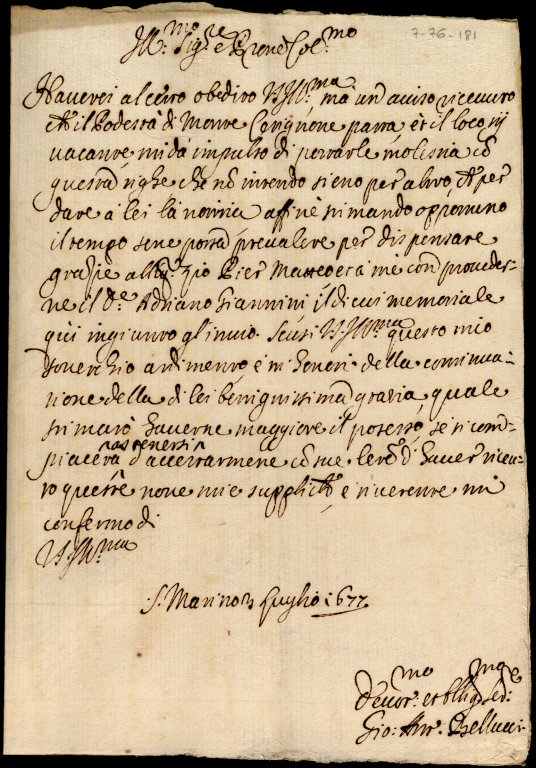 7-76-181
Ill.mo Sig.re e Prone Col.mo
Haverei al certo obedito V.S.Ill.ma, mà un aviso ricevuto
ch'il Podestà di Monte Cerignone parta, et il loco sij
vacante mi dà impulso di portarle molestia cõ
questa righe che nõ intendo sieno per altro, ch per
dare à lei la notitia affine stimando opportuno
il tempo sene possa prevalere per dispensare
gratie al Sig.r zio Pier Matteo et à me con proveder-
ne il d.º Adriano Giannini il di cui memoriale
qui ingiunto gl'invio. Scusi V.S.Ill.ma questo mio
soverchio ardimento, e mi honori della continua-
tione della di lei benignissima gratia, quale
stimarò haverne maggiore il possesso, se si com-
piacerà d'accertarmene cõ sue lere d'haver ricevu-
to queste mie supplich e riverente mi
confermo di
V.S.Ill.ma
S. Marino Luglio 1677
Devot.mo et obblig.mo Se.re
Gio: Ant.º Bellucci